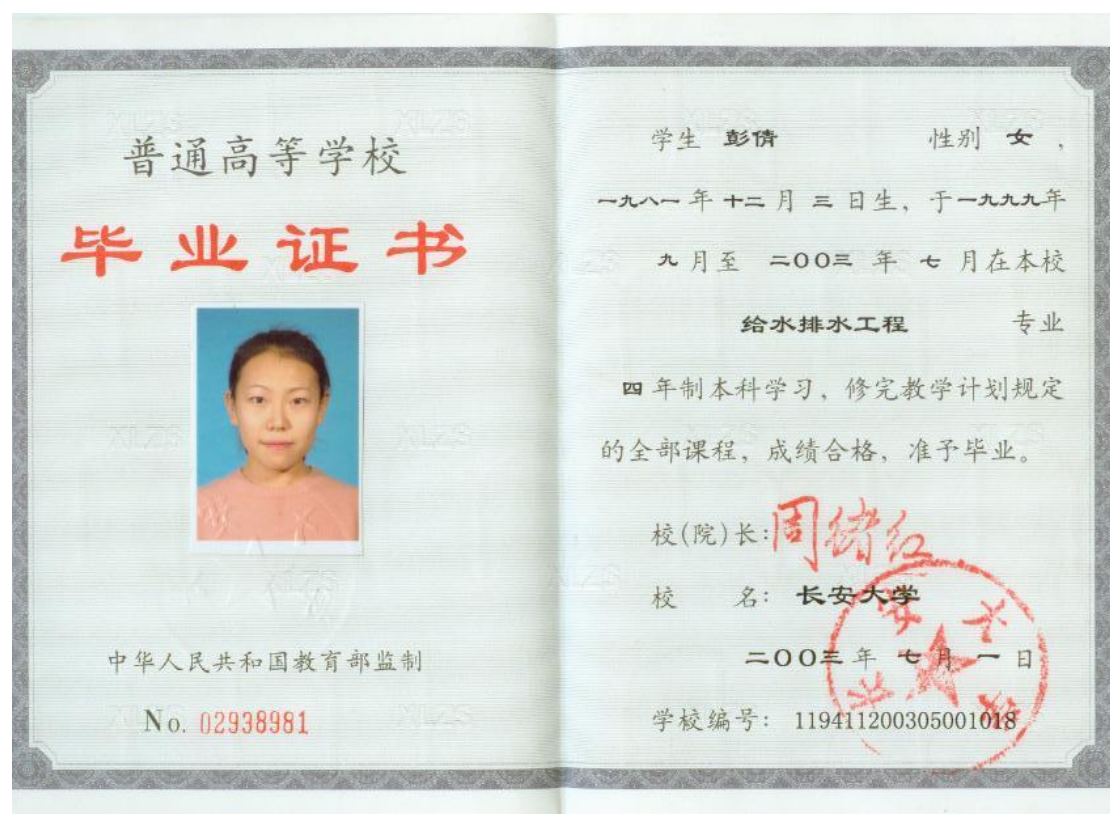 普通高等学校
毕业证书
中华人民共和国教育部监制
No. 02938981
学生 彭倩 性别 女，
一九八一年十二月三日生，于一九九九年
九月至二〇〇三年七月在本校
给水排水工程 专业
四年制本科学习，修完教学计划规定
的全部课程，成绩合格，准予毕业。
校(院)长:周绪红
校 名：长安大学
二〇〇三年七月一日
学校编号：119411200305001018
长安大学
XLZS